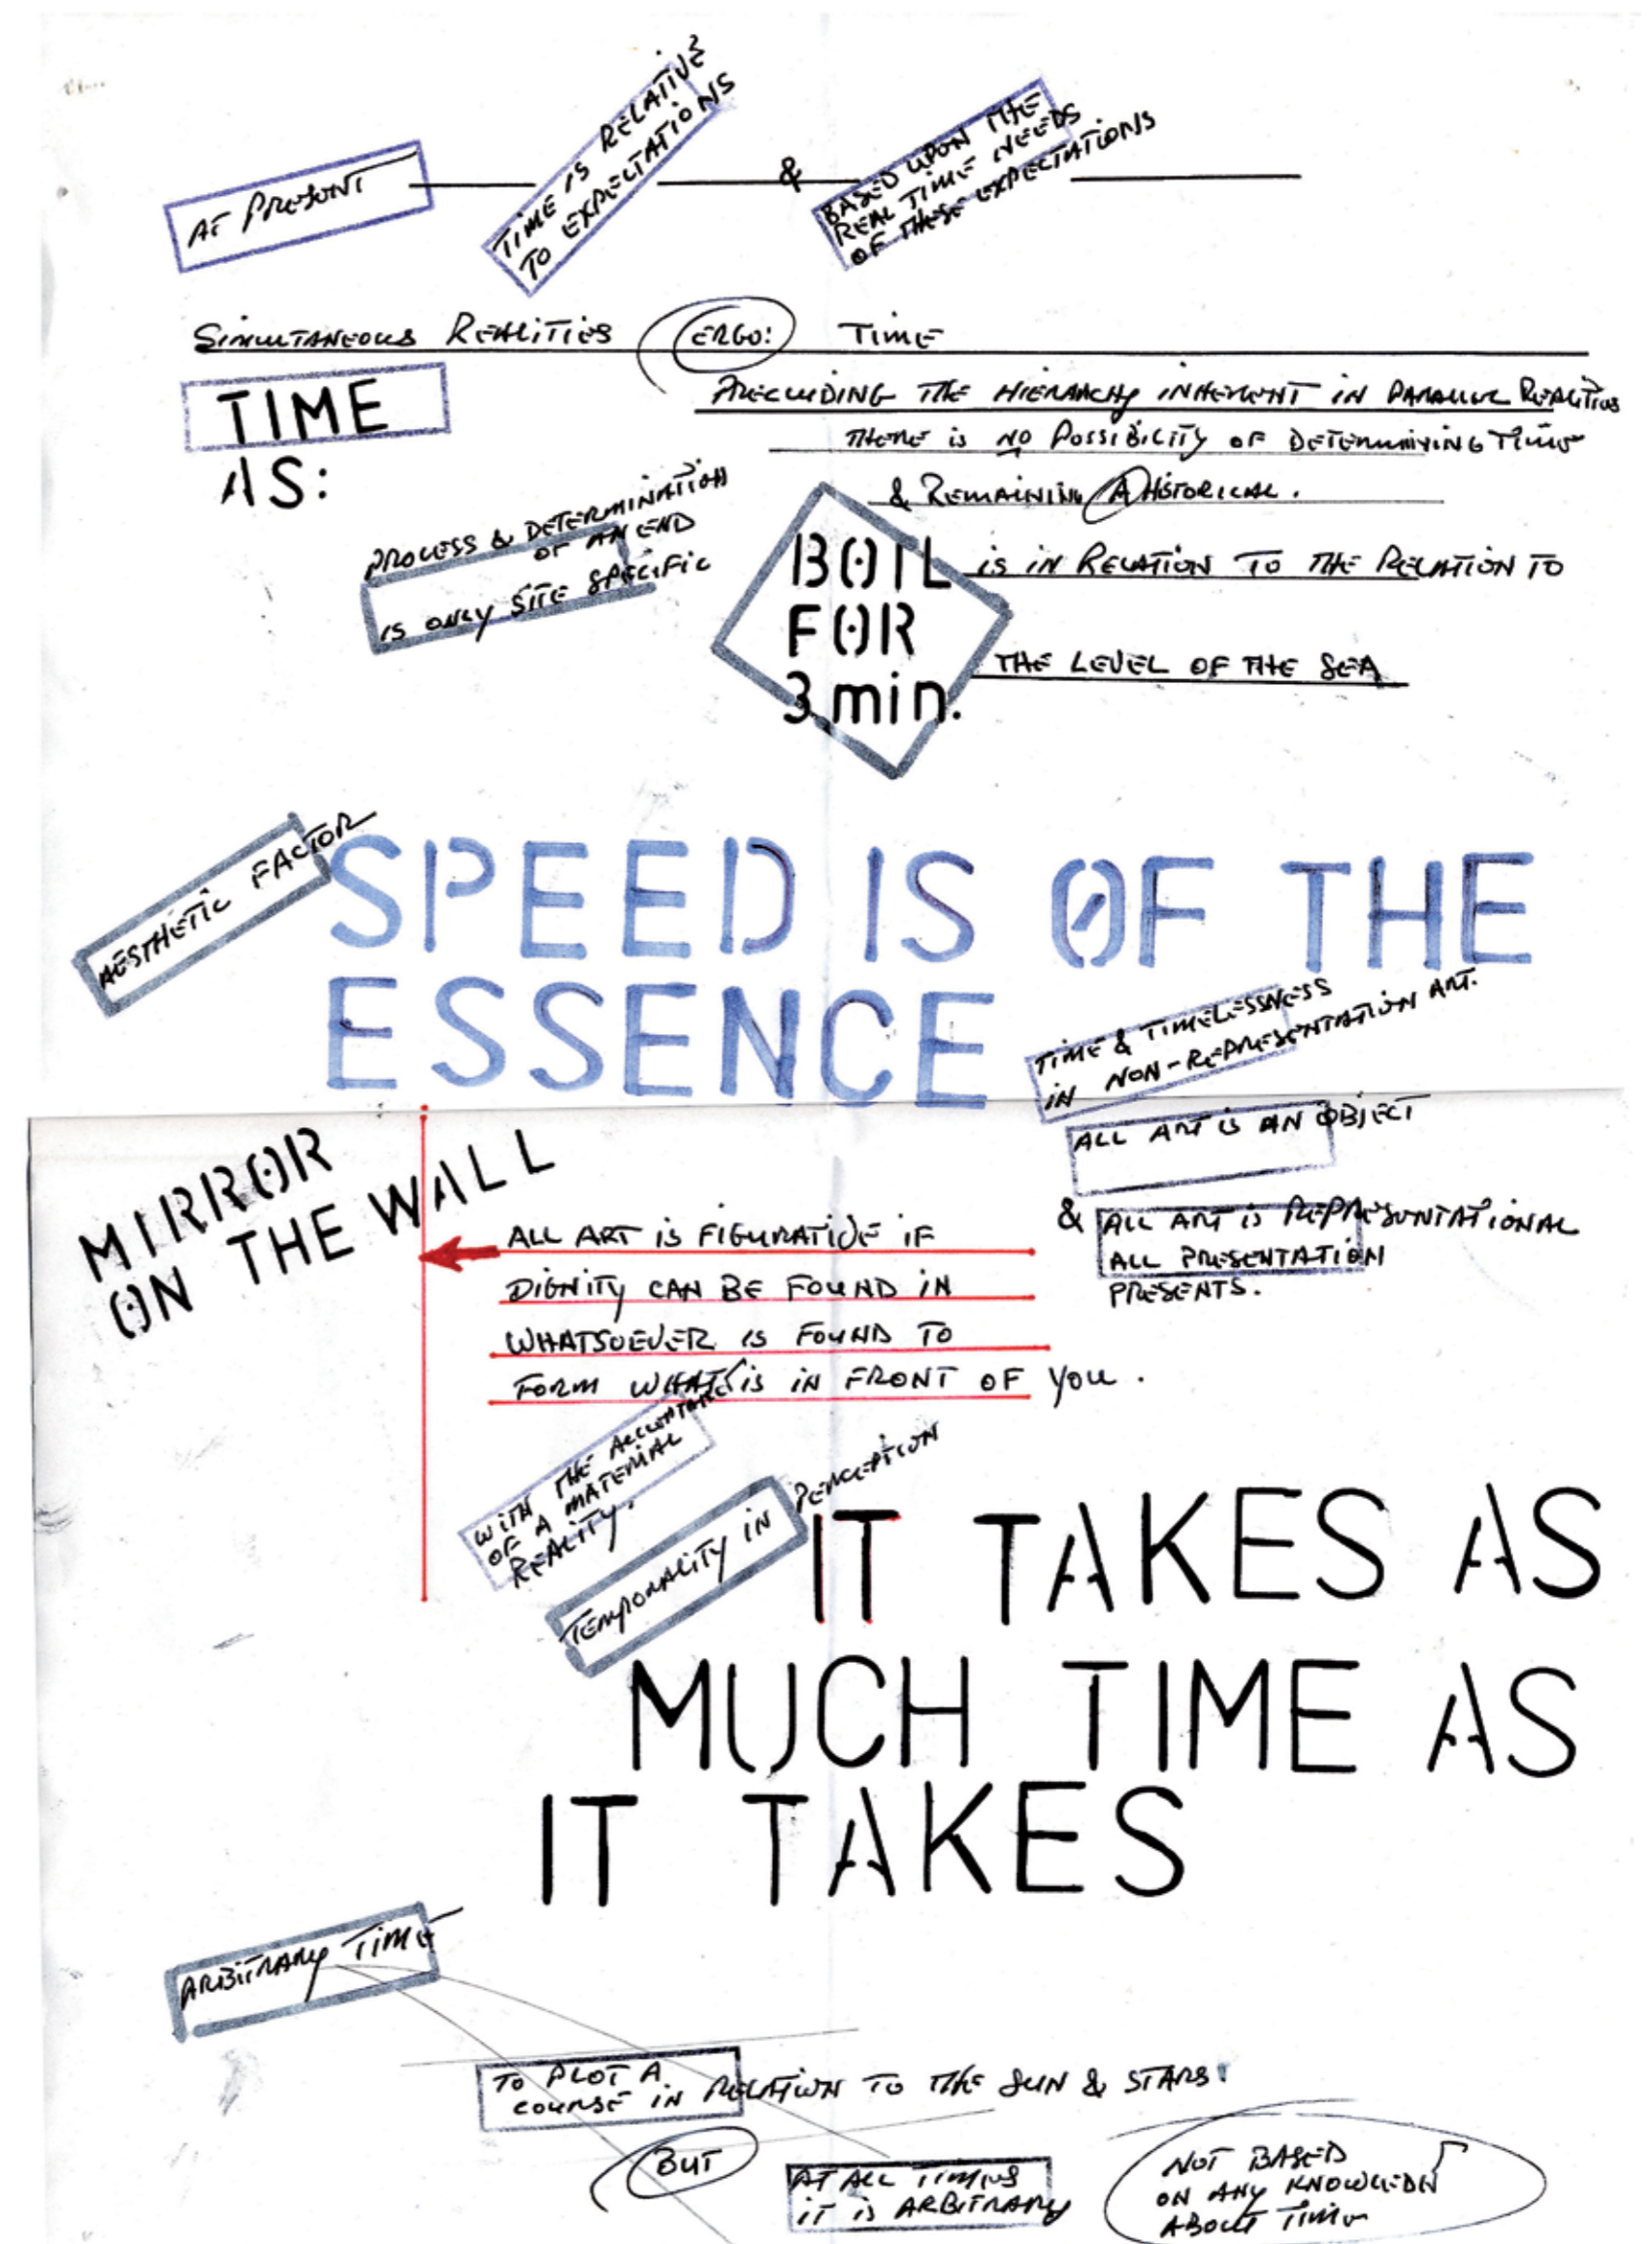 AT PRESENT
TIME IS RELATIVE
TO EXPECTATIONS
&
BASED UPON THE
REAL TIME NEEDS
OF THESE EXPECTATIONS
SIMULTANEOUS REALITIES ERGO: TIME
TIME
AS:
PRECLUDING THE HIERARCHY INHERENT IN PARALLEL REALITIES
THERE IS NO POSSIBILITY OF DETERMINING TIME
& REMAINING AHISTORICAL.
PROCESS & DETERMINATION
OF AN END
IS ONLY SITE SPECIFIC
BOIL
FOR
3 min.
IS IN RELATION TO THE RELATION TO
THE LEVEL OF THE SEA
AESTHETIC FACTOR
SPEED IS OF THE
ESSENCE
TIME & TIMELESSNESS
IN NON-REPRESENTATION ART.
ALL ART IS AN OBJECT
& ALL ART IS REPRESENTATIONAL
ALL PRESENTATION
PRESENTS.
MIRROR
ON THE WALL
ALL ART IS FIGURATIVE IF
DIGNITY CAN BE FOUND IN
WHATSOEVER IS FOUND TO
FORM WHAT IS IN FRONT OF YOU.
WITH THE ACCEPTANCE
OF A MATERIAL
REALITY.
TEMPORALITY IN PERCEPTION
IT TAKES AS
MUCH TIME AS
IT TAKES
ARBITRARY TIME
TO PLOT A
COURSE IN RELATION TO THE SUN & STARS.
BUT
AT ALL TIMES
IT IS ARBITRARY
NOT BASED
ON ANY KNOWLEDGE
ABOUT TIME